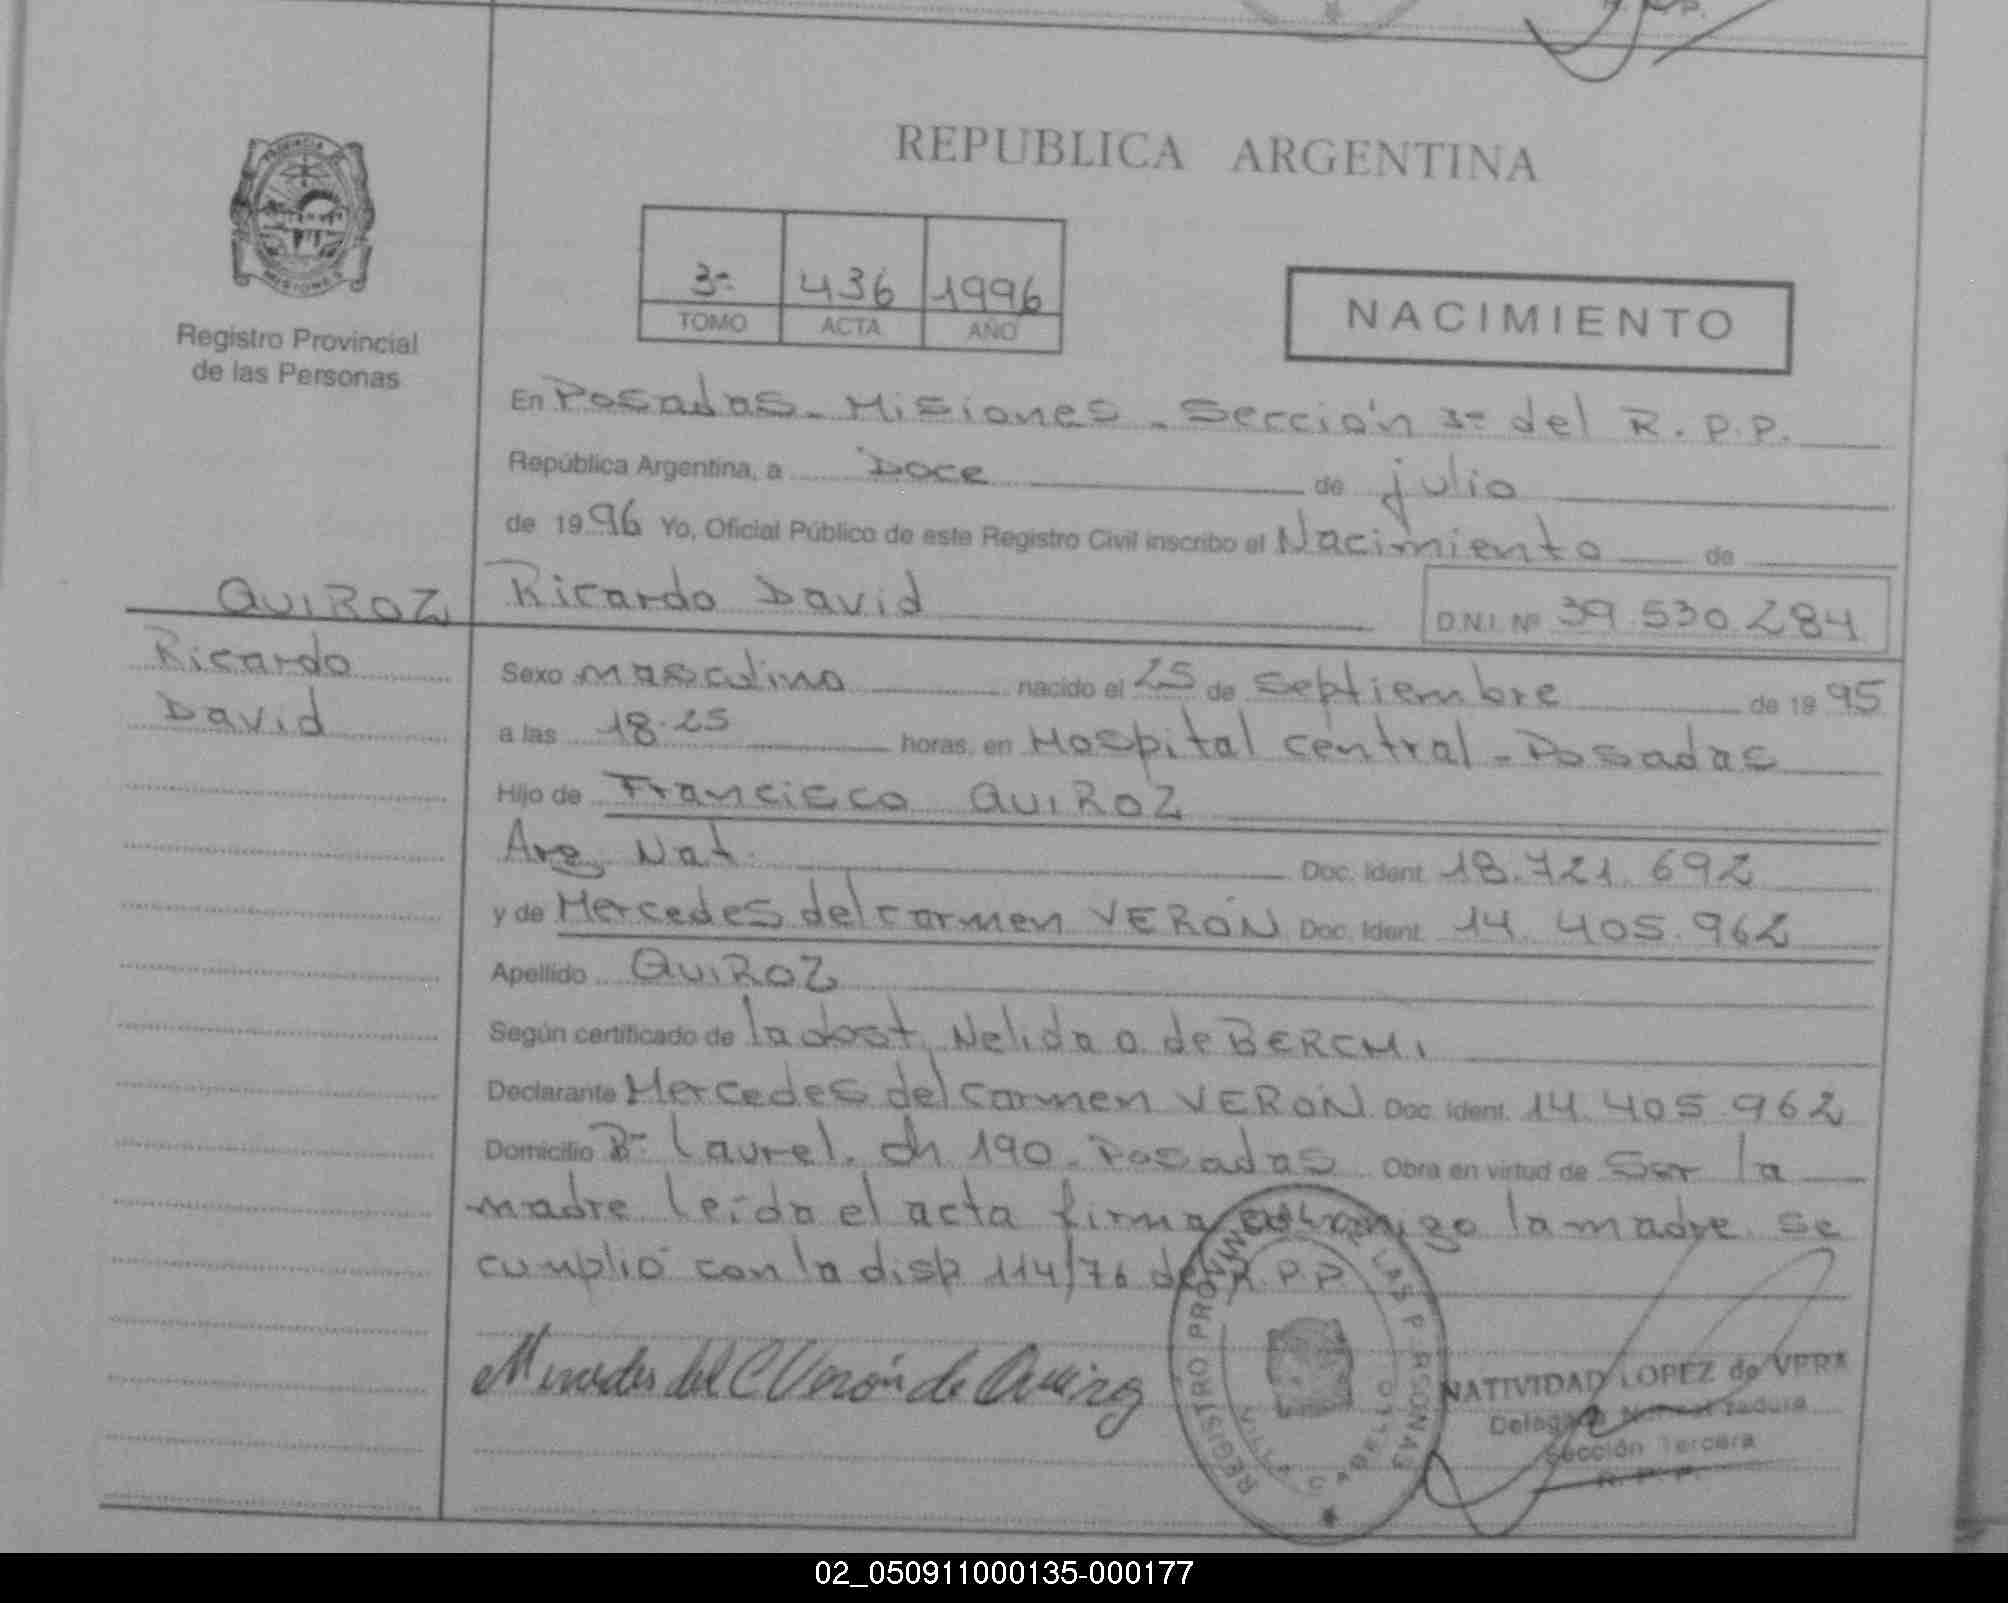 R.P.P.
REPUBLICA ARGENTINA
PROVINCIA DE
MISIONES
Registro Provincial
de las Personas
3= 436 1996
TOMO ACTA AÑO
NACIMIENTO
En Posadas - Misiones - Sección 3= del R.P.P.
República Argentina, a Doce de julio
de 1996 Yo, Oficial Público de este Registro Civil inscribo el Nacimiento de
QUIROZ
Ricardo
David
Ricardo David D.N.I. Nº 39.530.284
Sexo masculino nacido el 25 de septiembre de 1995
a las 18.25 horas, en Hospital central - Posadas
Hijo de Francisco QUIROZ
Arg. Nat. Doc. Ident. 18.721.692
y de Mercedes del carmen VERÓN Doc. Ident. 14.405.962
Apellido QUIROZ
Según certificado de la obst. Nelida o. de BERCHI
Declarante Mercedes del carmen VERÓN Doc. Ident. 14.405.962
Domicilio B= Laurel. ch 190. Posadas Obra en virtud de ser la
madre leída el acta firma conmigo la madre. se
cumplió con la disp 114/76 del R.P.P.
Mercedes del C Verón de Quiroz
REGISTRO PROVINCIAL DE LAS PERSONAS
VILLA CABELLO
NATIVIDAD LOPEZ de VERA
Delegada
Sección Tercera
R. P. P.
02_050911000135-000177